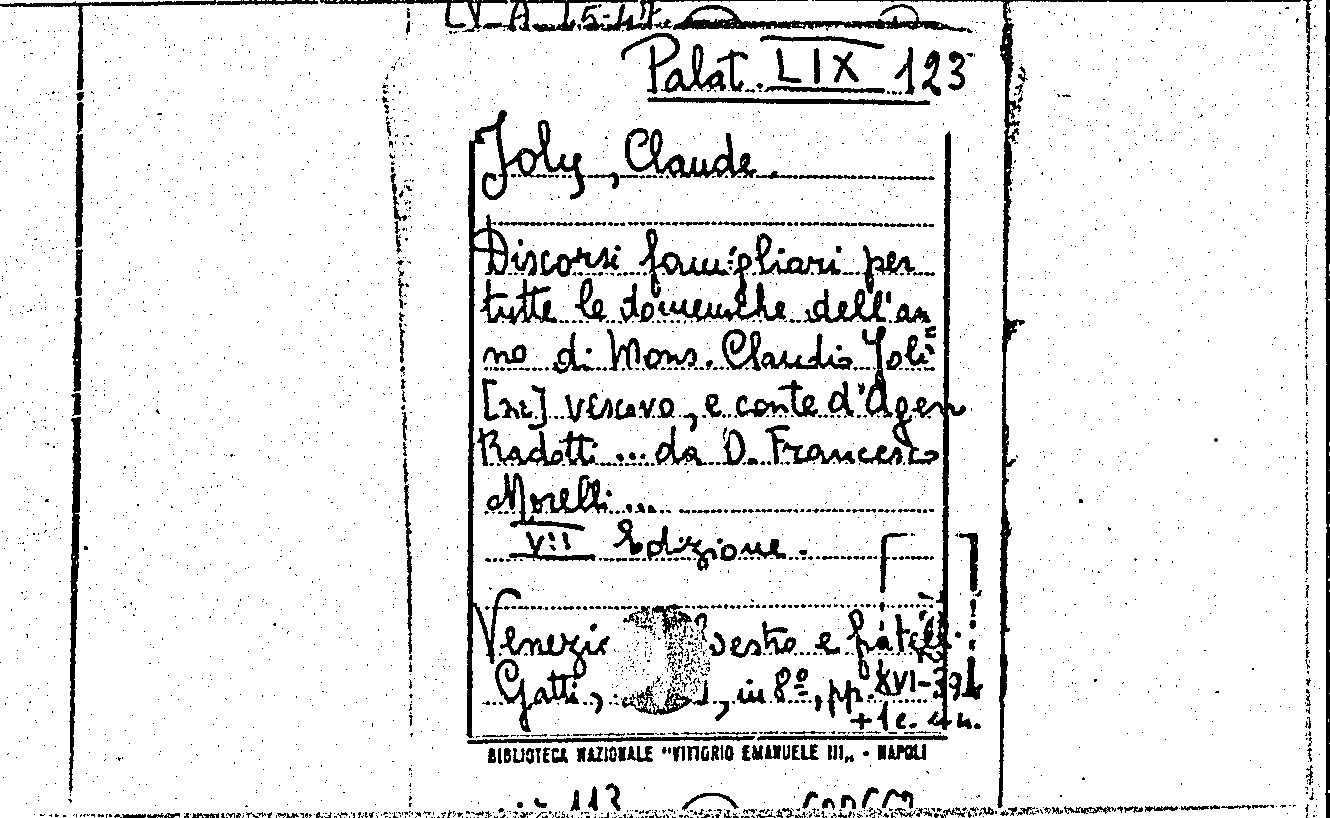 Palat. LIX 123
Joly, Claude.
Discorsi famigliari per
tutte le domeniche dell'an=
no di Mons. Claudio Joli
[sic] vescovo, e conte d'Agen
Radotti ... da D. Francesco
Morelli ...
VII Edizione.
e fratelli
Gatti, in 8º, pp. XVI-391
+ 1 c.
BIBLIOTECA NAZIONALE "VITTORIO EMANUELE III„ - NAPOLI